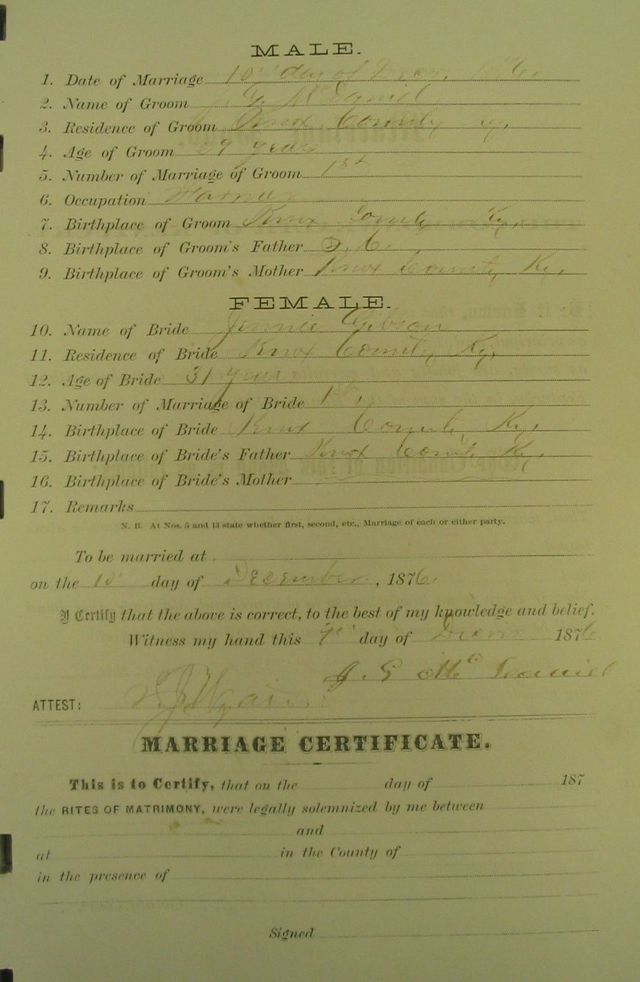 MALE.
1. Date of Marriage 10th day of Decr. 1876.
2. Name of Groom J. G. McDaniel
3. Residence of Groom Knox County Ky.
4. Age of Groom 29 years
5. Number of Marriage of Groom 1st
6. Occupation Farmer
7. Birthplace of Groom Knox County Ky.
8. Birthplace of Groom's Father S. C.
9. Birthplace of Groom's Mother Knox County Ky.
FEMALE.
10. Name of Bride Jennie Gibson
11. Residence of Bride Knox County, Ky.
12. Age of Bride 31 years
13. Number of Marriage of Bride 1st
14. Birthplace of Bride Knox County, Ky.
15. Birthplace of Bride's Father Knox County Ky.
16. Birthplace of Bride's Mother
17. Remarks
N. B. At Nos. 5 and 13 state whether first, second, etc., Marriage of each or either party.
To be married at
on the 10th day of December, 1876.
I Certify that the above is correct, to the best of my knowledge and belief.
Witness my hand this day of 1876
J. G. McDaniel
ATTEST:
MARRIAGE CERTIFICATE.
This is to Certify, that on the day of 187
the RITES OF MATRIMONY, were legally solemnized by me between
and
at in the County of
in the presence of
Signed